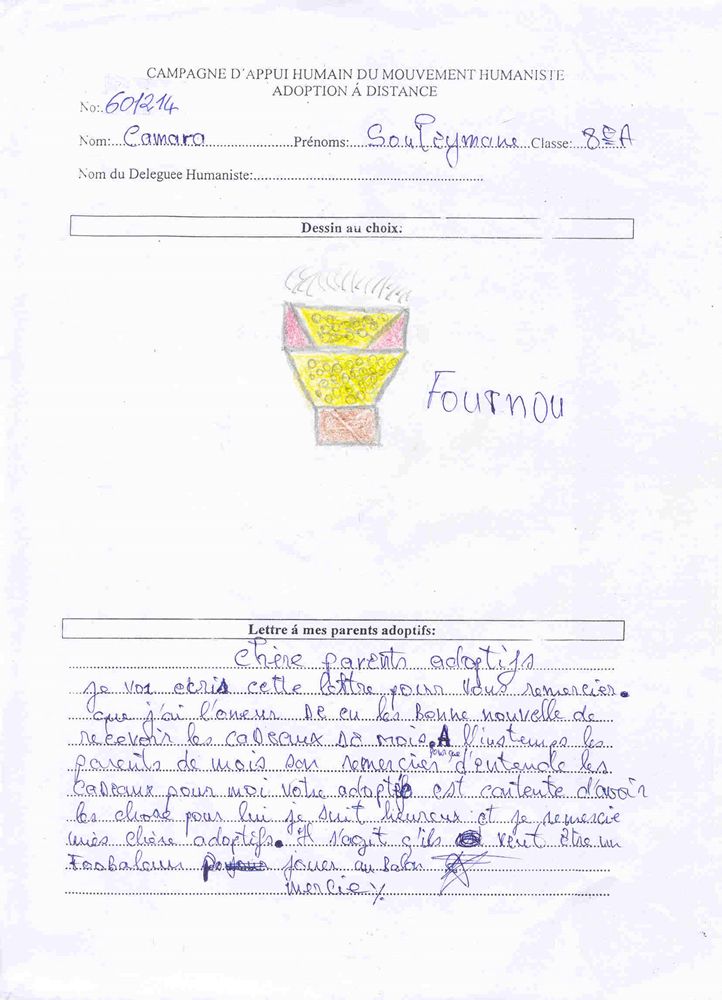 CAMPAGNE D'APPUI HUMAIN DU MOUVEMENT HUMANISTE
ADOPTION Á DISTANCE
No: 601214
Nom: Camara Prénoms: Souleymane Classe: 8è A
Nom du Deleguee Humaniste:
Dessin au choix:
Fournou
Lettre á mes parents adoptifs:
chère parents adoptifs
je vos ecris cette lettre pour vous remercier.
que j'ai l'oneur De eu les Bonne nouvelle de
recevoir les caDeaux De mois. A l'instemps les
parents de mois son remercier pour que d'entende les
caDeaux pour moi votre adoptife est contente d'avoir
les chose pour lui je suit heureux et je remercie
mes chère adoptifs. Il s'agit q'ils veut être un
Foobaleur jouer au Balon
mercie